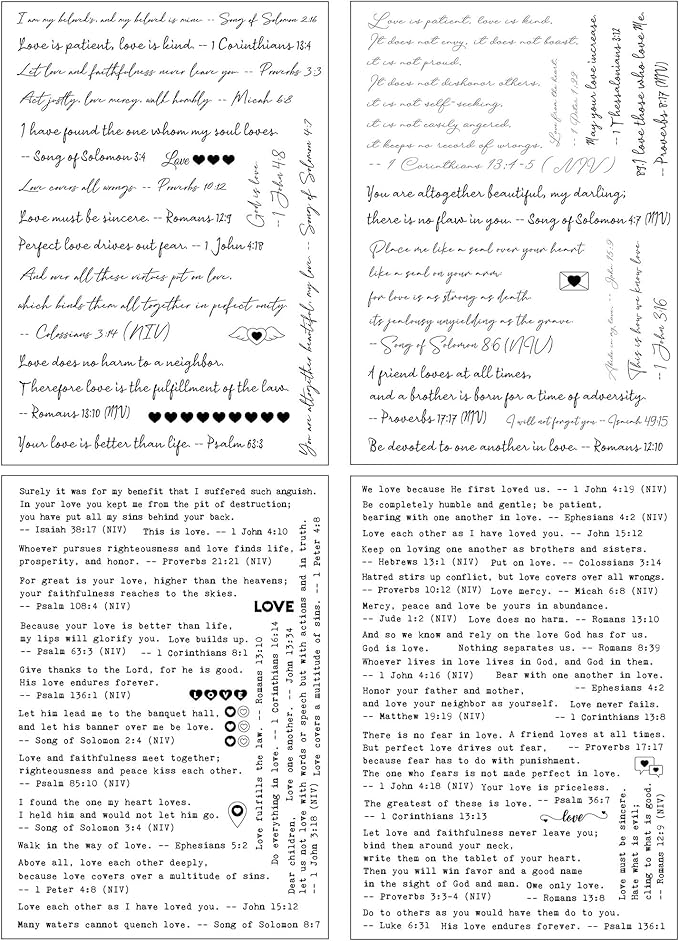 I am my beloved's, and my beloved is mine -- Song of Solomon 2:16
Love is patient, love is kind. -- 1 Corinthians 13:4
Let love and faithfulness never leave you -- Proverbs 3:3
Act justly, love mercy, walk humbly -- Micah 6:8
I have found the one whom my soul loves.
-- Song of Solomon 3:4
Love
Love covers all wrongs -- Proverbs 10:12
Love must be sincere. -- Romans 12:9
Perfect love drives out fear. -- 1 John 4:18
And over all these virtues put on love,
which binds them all together in perfect unity.
-- Colossians 3:14 (NIV)
Love does no harm to a neighbor.
Therefore love is the fulfillment of the law.
-- Romans 13:10 (NIV)
Your love is better than life. -- Psalm 63:3
God is love
-- 1 John 4:8
You are altogether beautiful, my love -- Song of Solomon 4:7
Love is patient, love is kind.
It does not envy, it does not boast,
it is not proud.
It does not dishonor others,
it is not self-seeking,
it is not easily angered,
it keeps no record of wrongs.
-- 1 Corinthians 13:4-5 (NIV)
Love from the heart.
-- 1 Peter 1:22
May your love increase.
-- 1 Thessalonians 3:12
I love those who love Me.
-- Proverbs 8:17 (NIV)
You are altogether beautiful, my darling;
there is no flaw in you. -- Song of Solomon 4:7 (NIV)
Place me like a seal over your heart
like a seal on your arm
for love is as strong as death
its jealousy unyielding as the grave.
-- Song of Solomon 8:6 (NIV)
Abide in my love -- John 15:9
This is how we know love
-- 1 John 3:16
A friend loves at all times,
and a brother is born for a time of adversity.
-- Proverbs 17:17 (NIV)
I will not forget you -- Isaiah 49:15
Be devoted to one another in love. -- Romans 12:10
Surely it was for my benefit that I suffered such anguish.
In your love you kept me from the pit of destruction;
you have put all my sins behind your back.
-- Isaiah 38:17 (NIV)
This is love. -- 1 John 4:10
Whoever pursues righteousness and love finds life,
prosperity, and honor. -- Proverbs 21:21 (NIV)
For great is your love, higher than the heavens;
your faithfulness reaches to the skies.
-- Psalm 108:4 (NIV)
LOVE
Because your love is better than life,
my lips will glorify you.
-- Psalm 63:3 (NIV)
Love builds up.
-- 1 Corinthians 8:1
Give thanks to the Lord, for he is good.
His love endures forever.
-- Psalm 136:1 (NIV)
LOVE
Let him lead me to the banquet hall,
and let his banner over me be love.
-- Song of Solomon 2:4 (NIV)
Love and faithfulness meet together;
righteousness and peace kiss each other.
-- Psalm 85:10 (NIV)
I found the one my heart loves.
I held him and would not let him go.
-- Song of Solomon 3:4 (NIV)
Walk in the way of love. -- Ephesians 5:2
Above all, love each other deeply,
because love covers over a multitude of sins.
-- 1 Peter 4:8 (NIV)
Love each other as I have loved you. -- John 15:12
Many waters cannot quench love. -- Song of Solomon 8:7
Love fulfills the law. -- Romans 13:10
Do everything in love. -- 1 Corinthians 16:14
Dear children, Love one another. -- John 13:34
let us not love with words or speech but with actions and in truth.
-- 1 John 3:18 (NIV)
Love covers a multitude of sins. -- 1 Peter 4:8
We love because He first loved us. -- 1 John 4:19 (NIV)
Be completely humble and gentle; be patient,
bearing with one another in love. -- Ephesians 4:2 (NIV)
Love each other as I have loved you. -- John 15:12
Keep on loving one another as brothers and sisters.
-- Hebrews 13:1 (NIV)
Put on love. -- Colossians 3:14
Hatred stirs up conflict, but love covers over all wrongs.
-- Proverbs 10:12 (NIV)
Love mercy. -- Micah 6:8 (NIV)
Mercy, peace and love be yours in abundance.
-- Jude 1:2 (NIV)
Love does no harm. -- Romans 13:10
And so we know and rely on the love God has for us.
God is love.
Nothing separates us. -- Romans 8:39
Whoever lives in love lives in God, and God in them.
-- 1 John 4:16 (NIV)
Bear with one another in love.
-- Ephesians 4:2
Honor your father and mother,
and love your neighbor as yourself.
-- Matthew 19:19 (NIV)
Love never fails.
-- 1 Corinthians 13:8
There is no fear in love.
But perfect love drives out fear,
because fear has to do with punishment.
The one who fears is not made perfect in love.
-- 1 John 4:18 (NIV)
A friend loves at all times.
-- Proverbs 17:17
Your love is priceless.
-- Psalm 36:7
The greatest of these is love.
-- 1 Corinthians 13:13
love
Let love and faithfulness never leave you;
bind them around your neck,
write them on the tablet of your heart.
Then you will win favor and a good name
in the sight of God and man.
-- Proverbs 3:3-4 (NIV)
Owe only love.
-- Romans 13:8
Love must be sincere.
Hate what is evil;
cling to what is good.
-- Romans 12:9 (NIV)
Do to others as you would have them do to you.
-- Luke 6:31
His love endures forever. -- Psalm 136:1